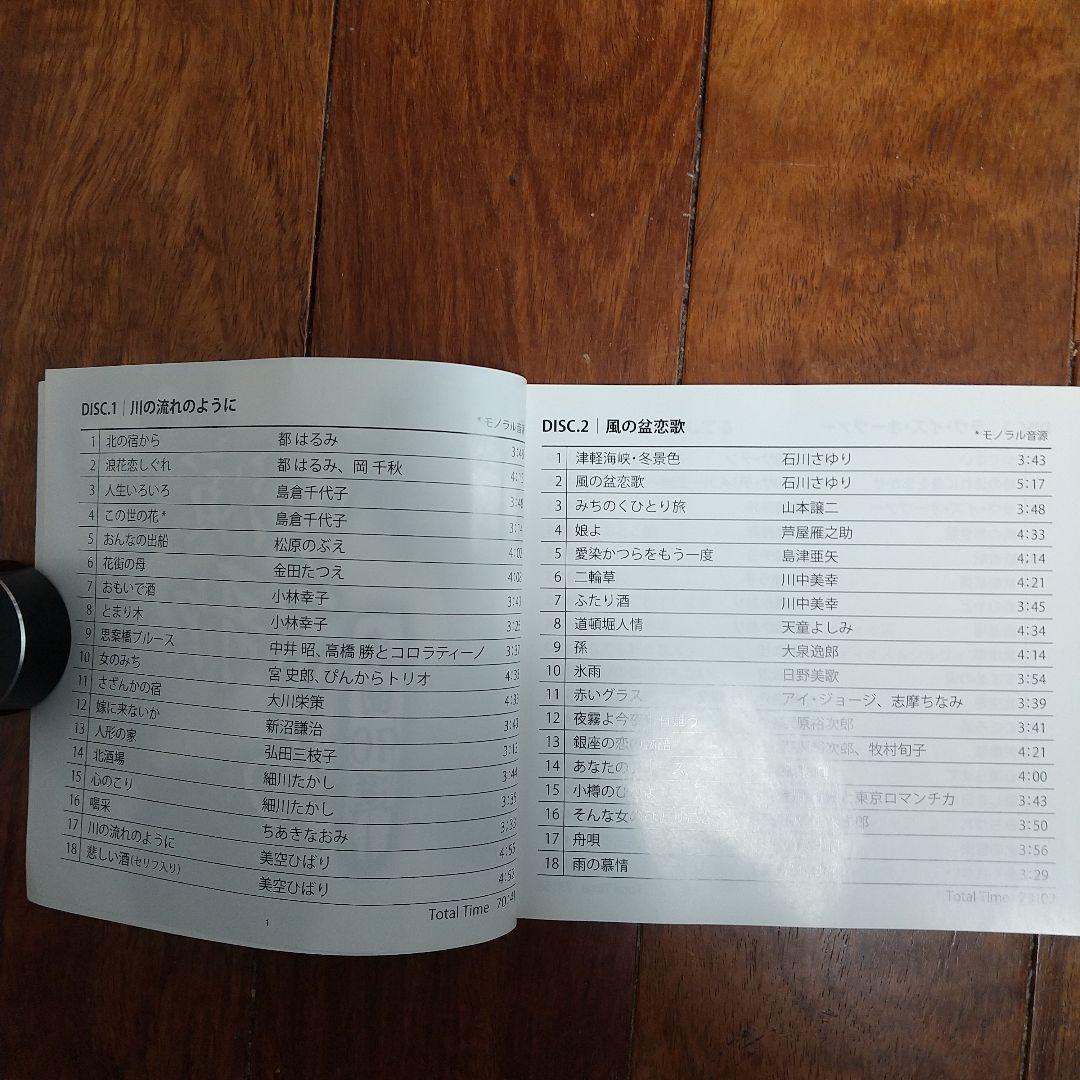 DISC.1｜川の流れのように
* モノラル音源
1 北の宿から 都 はるみ
2 浪花恋しぐれ 都 はるみ、岡 千秋
3 人生いろいろ 島倉千代子
4 この世の花 * 島倉千代子
5 おんなの出船 松原のぶえ 4:08
6 花街の母 金田たつえ
7 おもいで酒 小林幸子
8 とまり木 小林幸子
9 思案橋ブルース 中井 昭、高橋 勝とコロラティーノ 3:37
10 女のみち 宮 史郎、ぴんからトリオ
11 さざんかの宿 大川栄策
12 嫁に来ないか 新沼謙治
13 人形の家 弘田三枝子
14 北酒場 細川たかし
15 心のこり 細川たかし
16 喝采 ちあきなおみ
17 川の流れのように 美空ひばり
18 悲しい酒(セリフ入り) 美空ひばり 4:52
Total Time 70:41
1
DISC.2｜風の盆恋歌
* モノラル音源
1 津軽海峡・冬景色 石川さゆり 3:43
2 風の盆恋歌 石川さゆり 5:17
3 みちのくひとり旅 山本譲二 3:48
4 娘よ 芦屋雁之助 4:33
5 愛染かつらをもう一度 島津亜矢 4:14
6 二輪草 川中美幸 4:21
7 ふたり酒 川中美幸 3:45
8 道頓堀人情 天童よしみ 4:34
9 孫 大泉逸郎 4:14
10 氷雨 日野美歌 3:54
11 赤いグラス アイ・ジョージ、志摩ちなみ 3:39
12 夜霧よ今 原裕次郎 3:41
13 銀座の恋の 次郎、牧村旬子 4:21
14 あなたの 4:00
15 小樽のひ 東京ロマンチカ 3:43
16 そんな女の 3:50
17 舟唄 3:56
18 雨の慕情 3:29
Total Time